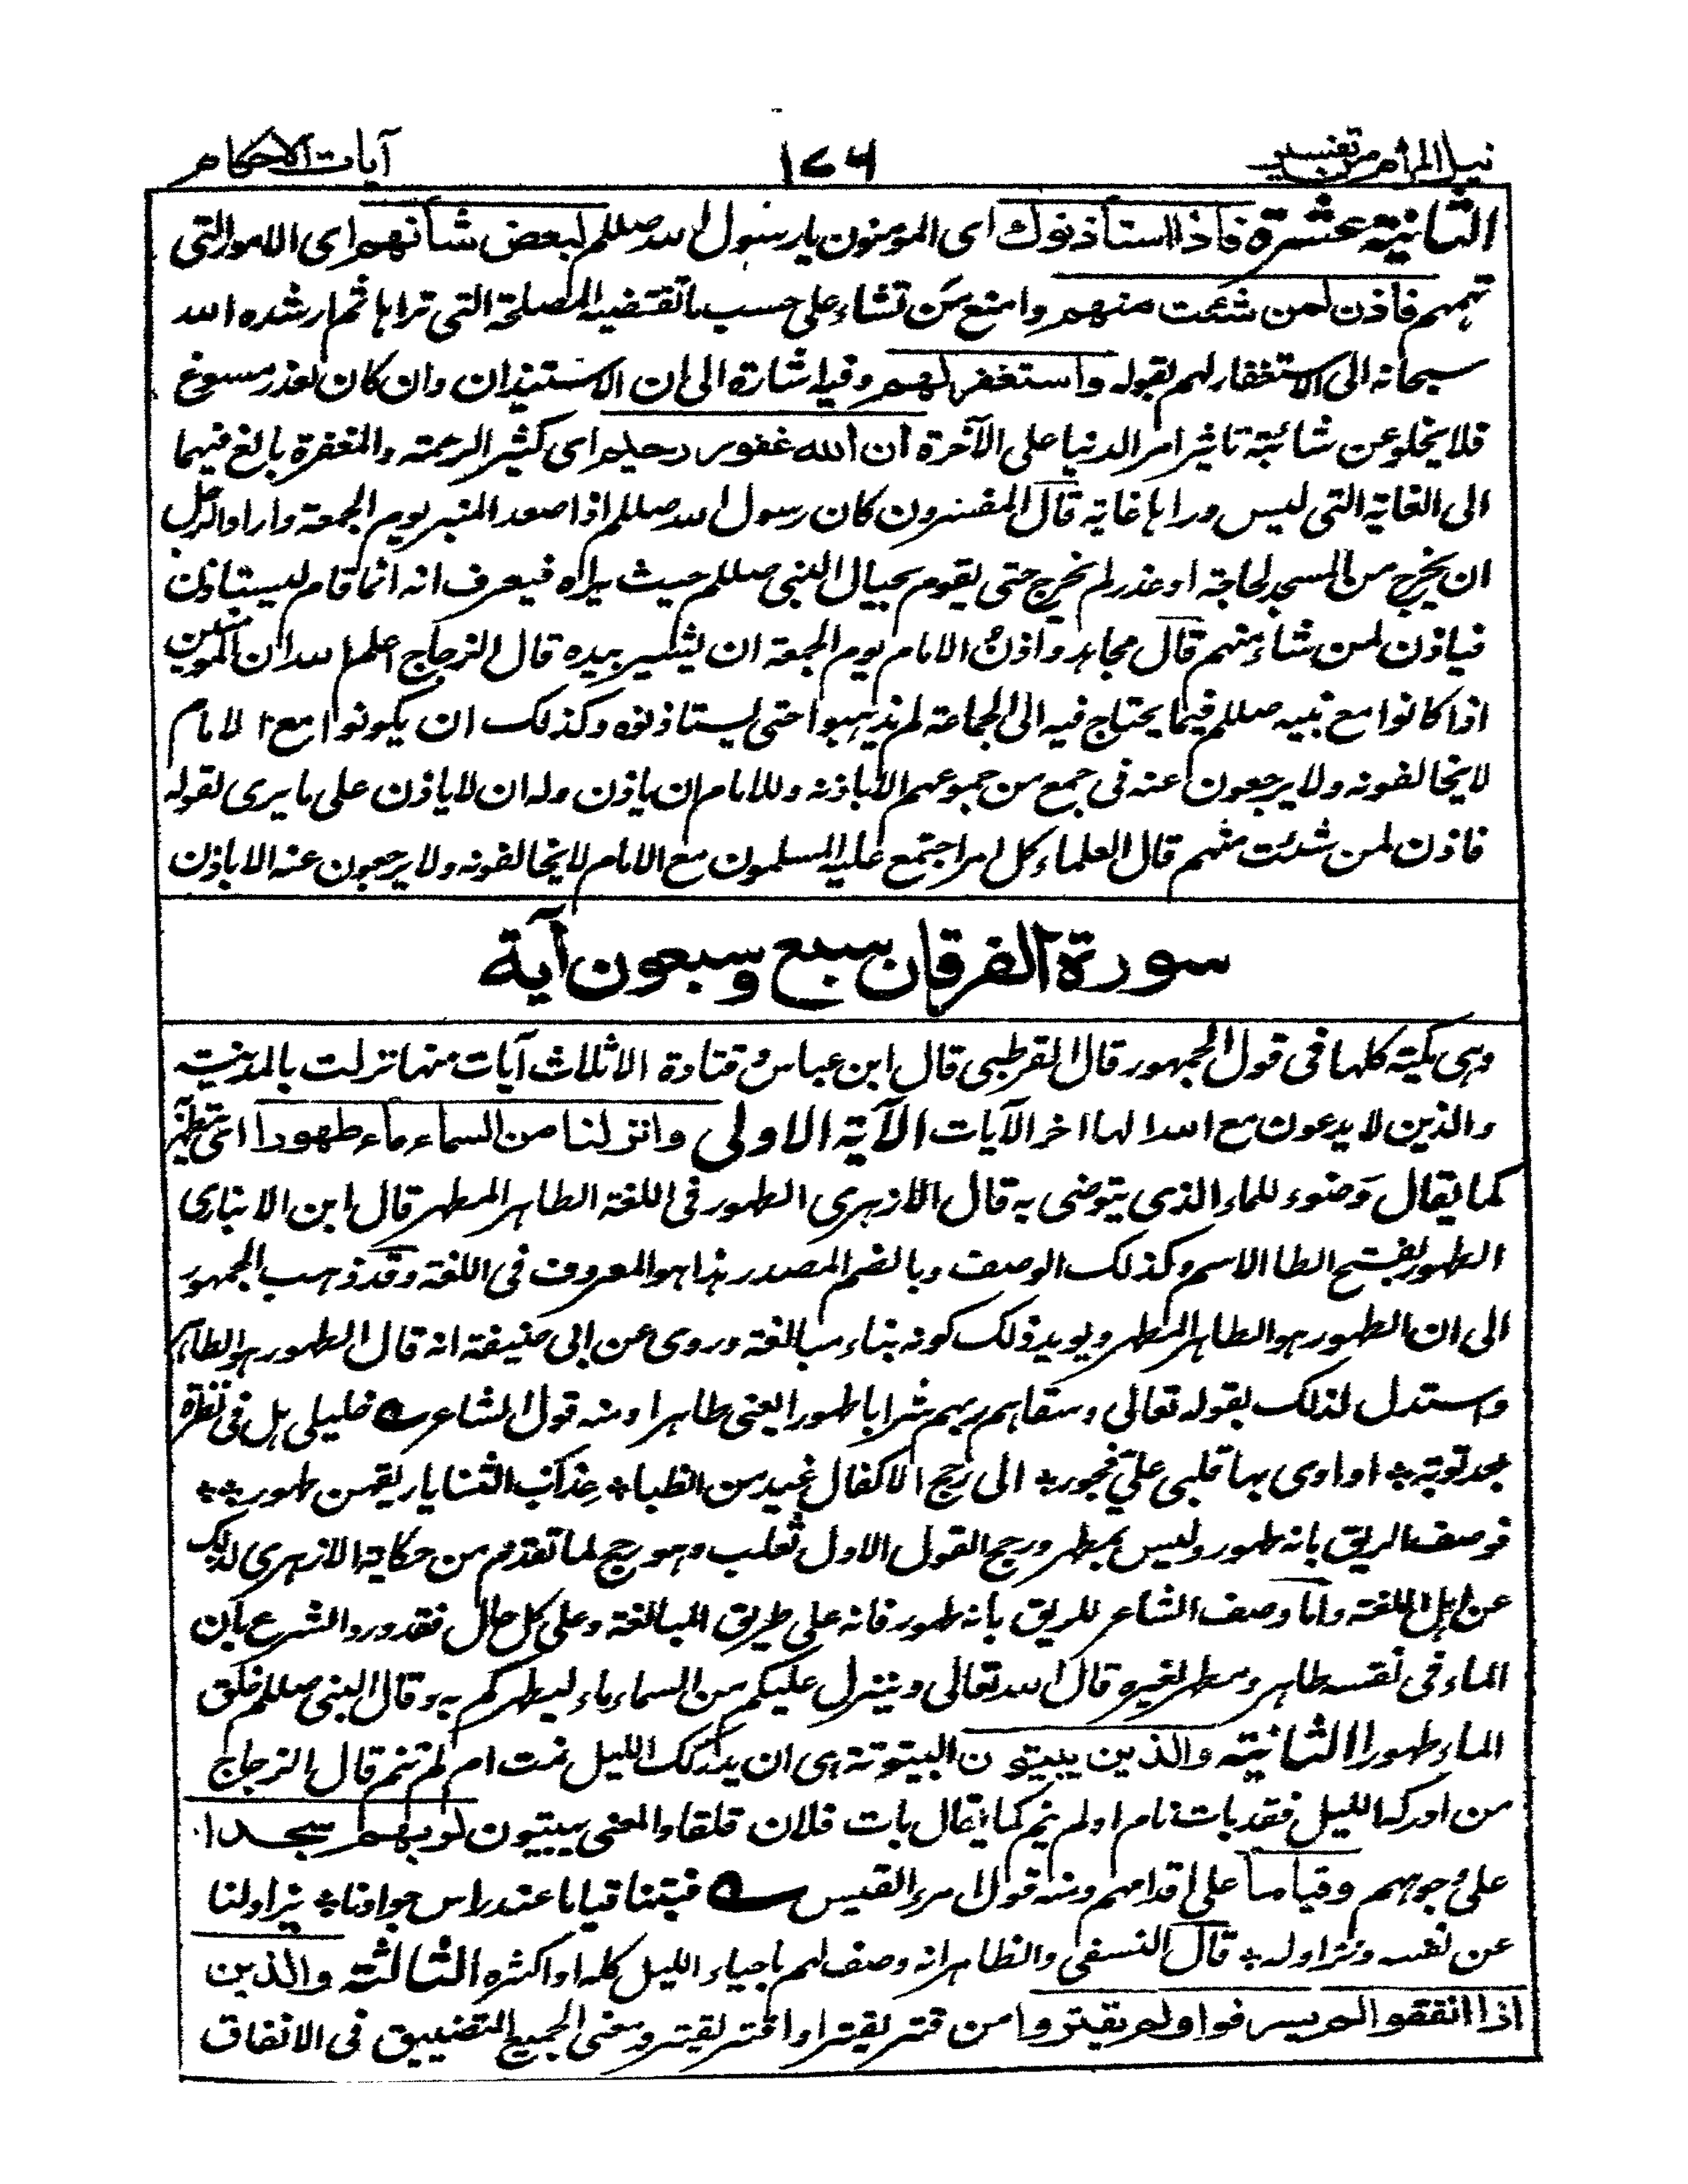 نيل المرام من تفسير ١٧٦ آيات الاحكام
الثانية عشرة فاذا استأذنوك اى المؤمنون يا رسول الله صللم لبعض شأنهم اى الامور التى
تهمهم فأذن لمن شئت منهم وامنع من تشاء على حسب ما تقتضيه المصلحة التى تراها ثم ارشده الله
سبحانه الى الاستغفار لهم بقوله واستغفر لهم وفيه اشارة الى ان الاستيذان وان كان لعذر مسوغ
فلا يخلو عن شائبة تاثير امر الدنيا على الآخرة ان الله غفور رحيم اى كثير الرحمة والمغفرة بالغ فيهما
الى الغاية التى ليس وراها غاية قال المفسرون كان رسول الله صللم اذا صعد المنبر يوم الجمعة واراد الرجل
ان يخرج من المسجد لحاجة او عذر لم يخرج حتى يقوم بحيال النبى صللم حيث يراه فيعرف انه انما قام ليستاذن
فياذن لمن شاء منهم قال مجاهد واذن الامام يوم الجمعة ان يشير بيده قال الزجاج اعلم الله ان المومنين
اذا كانوا مع نبيه صللم فيما يحتاج فيه الى الجماعة لم يذهبوا حتى يستاذنوه وكذلك ان يكونوا مع الامام
لا يخالفونه ولا يرجعون عنه فى جمع من جموعهم الا باذنه وللامام ان ياذن وله ان لا ياذن على ما يرى لقوله
فاذن لمن شئت منهم قال العلماء كل امر اجتمع عليه المسلمون مع الامام لا يخالفونه ولا يرجعون عنه الا باذن
سورة الفرقان سبع وسبعون آية
وهى مكية كلها فى قول الجمهور قال القرطبى قال ابن عباس وقتادة الا ثلاث آيات منها نزلت بالمدينة
والذين لا يدعون مع الله الها اخر الآيات الآية الاولى وانزلنا من السماء ماء طهورا اى يتطهر
كما يقال وَضوء للماء الذى يتوضى به قال الازهرى الطهور فى اللغة الطاهر المطهر قال ابن الانبارى
الطهور بفتح الطا الاسم وكذلك الوصف وبالضم المصدر هذا هو المعروف فى اللغة وقد ذهب الجمهور
الى ان الطهور هو الطاهر المطهر ويويد ذلك كونه بناء مبالغة وروى عن ابى حنيفة انه قال الطهور هو الطاهر
واستدل لذلك بقوله تعالى وسقاهم ربهم شرابا طهورا يعنى طاهرا ومنه قول الشاعر خليلى هل فى نظرة
بعد توبة ÷ اداوى بها قلبى علىّ فجور ÷ الى رجح الاكفال غيد من الظبا ÷ عذاب الثنايا ريقهن طهور ÷÷
فوصف الريق بانه طهور وليس بمطهر ورجح القول الاول ثعلب وهو رجح لما تقدم من حكاية الازهرى لذلك
عن اهل اللغة واما وصف الشاعر للريق بانه طهور فانه على طريق المبالغة وعلى كل حال فقد ورد الشرع بأن
الماء فى نفسه طاهر ومطهر لغيره قال الله تعالى وينزل عليكم من السماء ماء ليطهركم به وقال النبى صللم خلق
الماء طهورا الثانية والذين يبيتون البيتوتة هى ان يدركك الليل نمت ام لم تنم قال الزجاج
من ادركه الليل فقد بات نام او لم ينم كما يقال بات فلان قلقا والمعنى يبيتون لربهم سجدا
على وجوههم وقياما على اقدامهم ومنه قول امرء القيس فبتنا قياما عند راس جوادنا ÷ يزاولنا
عن نفسه ونزاوله ÷ قال النسفى والظاهر انه وصف لهم باحياء الليل كله او اكثره الثالثة والذين
اذا انفقوا لم يسرفوا ولم يقتروا من قتر يقتر او اقتر يقتر ومعنى الجميع التضييق فى الانفاق